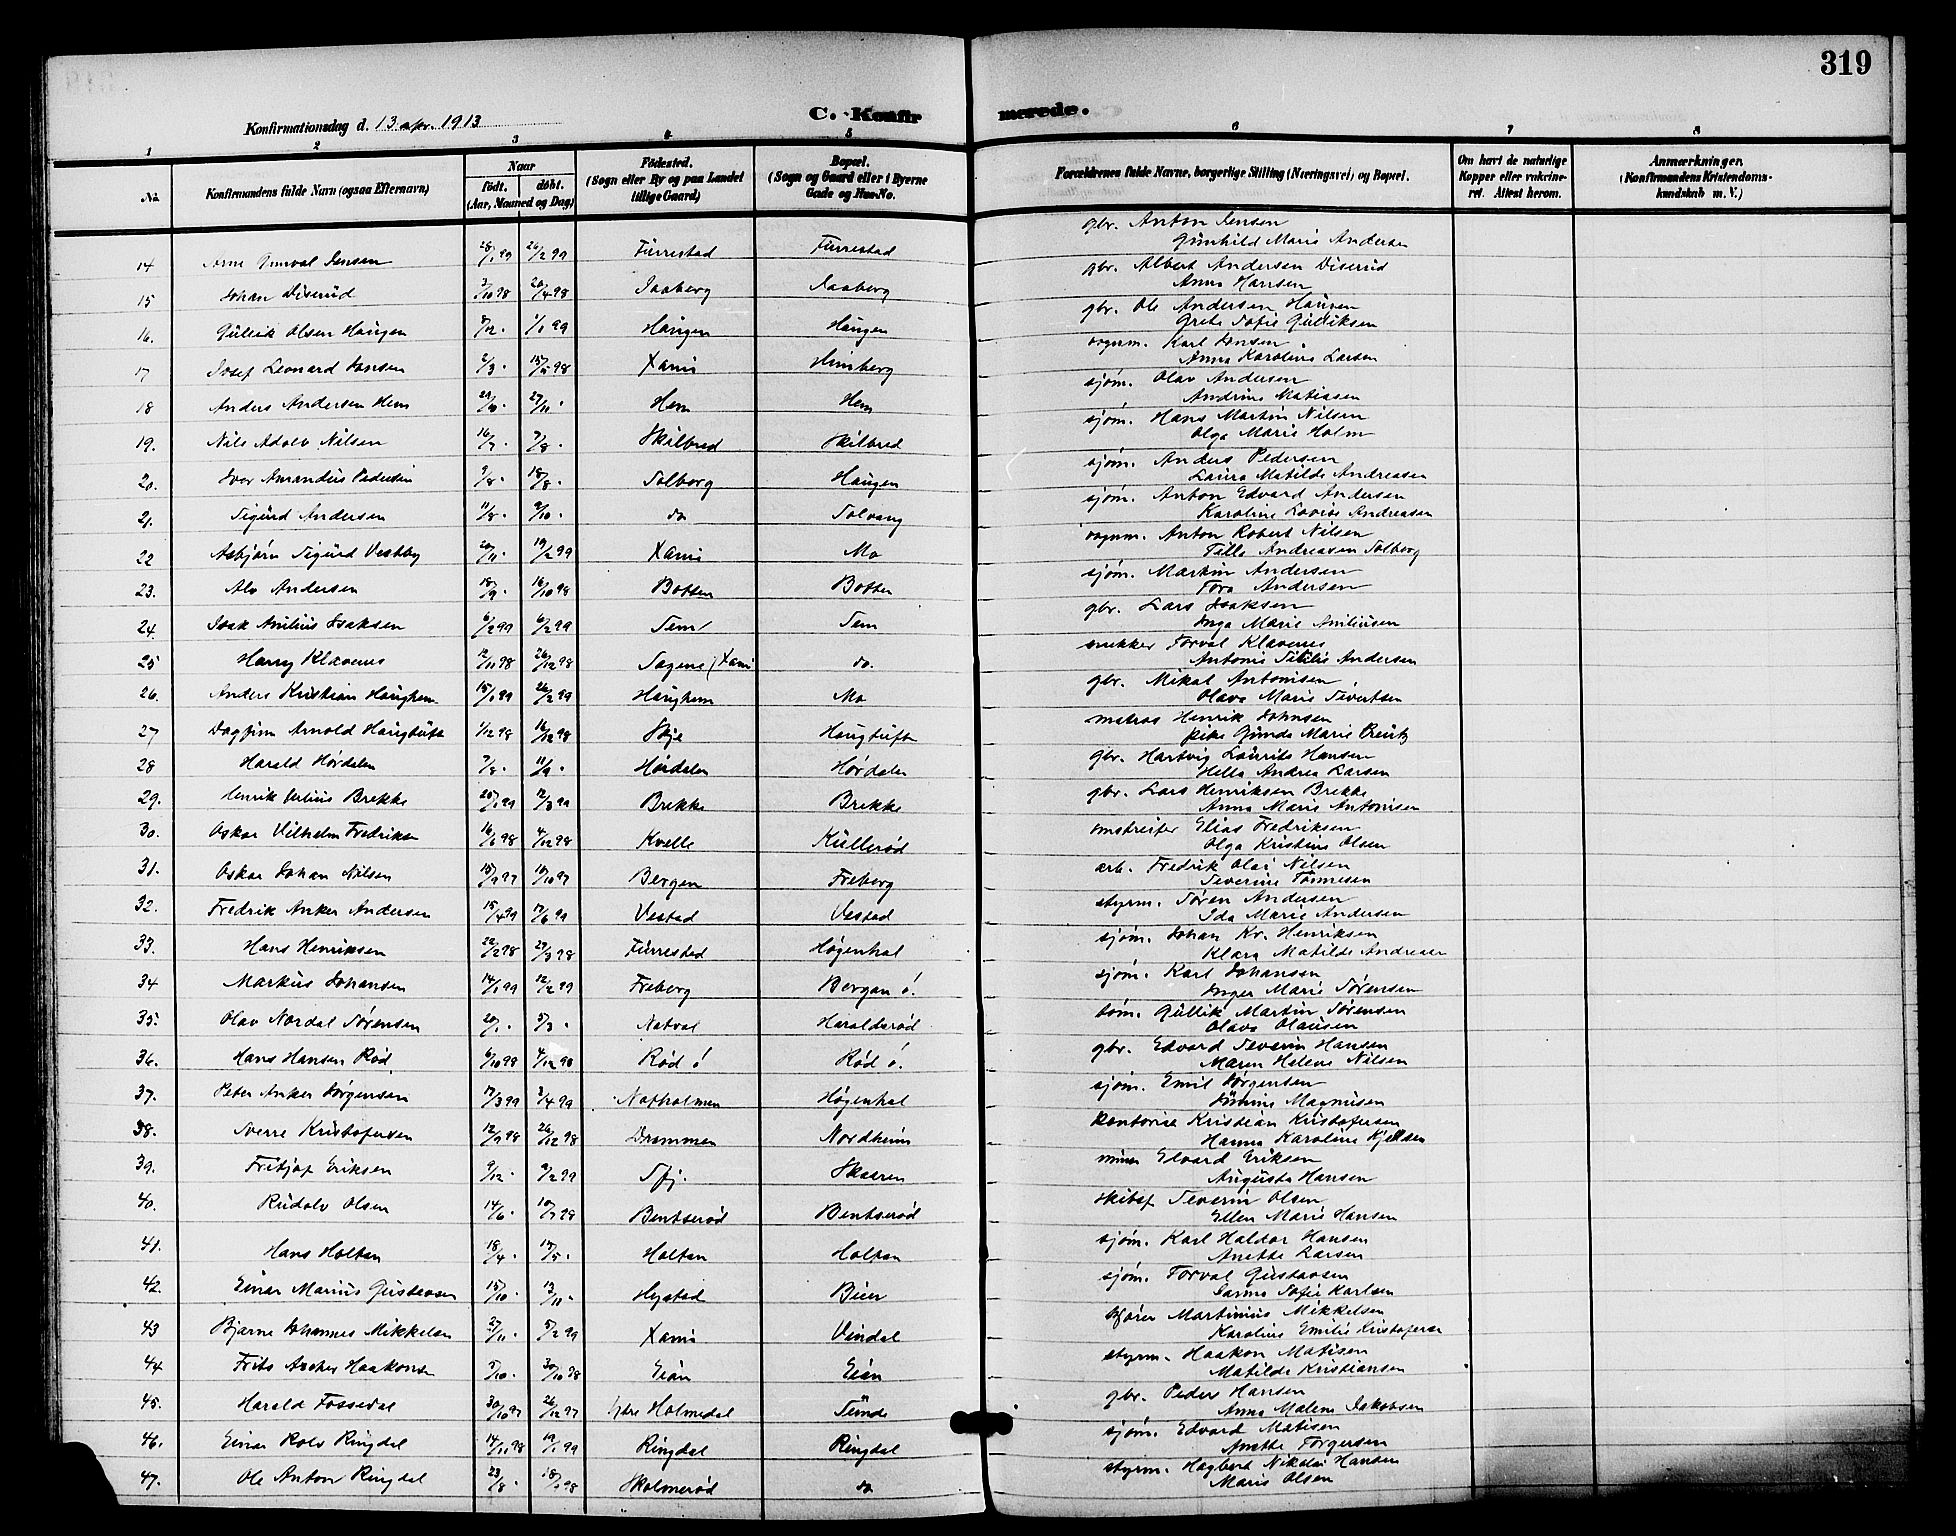 319
Konfirmationsdag d. 13 apr. 1913
C. Konfirmerede.
1 2 3 4 5 6 7 8
No. Konfirmandens fulde Navn (ogsaa Efternavn) Naar født. døbt. (Aar, Maaned og Dag) Fødested. (Sogn eller By og paa Landet tillige Gaard) Bopæl. (Sogn og Gaard eller i Byerne Gade og Hus-No. Forældrenes fulde Navne, borgerlige Stilling (Næringsvei) og Bopæl. Om havt de naturlige Kopper eller vakcineret. Attest herom. Anmærkninger. (Konfirmandens Kristendomskundskab m. V.)
14 Arne Gunval Jensen 28/1 99 26/2 99 Furrestad Furrestad gbr. Anton Jensen
Gunhild Marie Andersen
15 Johan Diserud Jaaberg Jaaberg gbr. Albert Andersen Diserud
Anna Hansen
16. Gullik Olsen Haugen 1/1 99 Haugen Haugen gbr. Ole Andersen Haugen
Grete Sofie Gulliksen
17 Josef Leonard Jansen 2/3 . Xania Himberg vognm. Karl Jansen
Anna Karoline Larsen
18 Anders Andersen Hem 27/11 . Hem Hem sjøm. Olav Andersen
Andrine Matiasen
19. Nils Adolv Nilsen 16/7 . 7/8 . Skilbred Skilbred sjøm. Hans Martin Nilsen
Olga Marie Holm
20. Ivar Amandus Pedersen 9/8 . 18/8 . Solberg Haugen sjøm. Anders Pedersen
Laura Matilde Andreasen
21. Sigurd Andersen 11/8 . 9/10 . do Solvang sjøm. Anton Edvard Andersen
Karoline Lovise Andreasen
22 Asbjørn Sigurd Vestby 20/11 . 19/2 99 Xania Mo vognm. Anton Robert Nilsen
Tilla Andreasen Solberg
23. Alv Andersen 18/9 . 16/10 98 Botten Botten sjøm. Martin Andersen
Tora Andersen
24. Isak Anilius Isaksen 6/2 99 Sem Sem gbr. Lars Isaksen
Inga Marie Aniliusen
25 Harry Klavenes 12/11 98 26/12 98 Sagene, Xania do. snekker Torval Klavenes
Antonie Andersen
26. Anders Kristian Haughem 15/1 99 26/2 99 Haughem Mo gbr. Mikal Antonisen
Olava Marie Sivertsen
27 Dagfinn Arnold Haugtuft 1/12 98 16/12 98 Skje Haugtuft matros Henrik Johnsen
pike Gunda Marie
28 Harald Hørdalen 7/8 . 11/9 . Hørdalen Hørdalen gbr. Hartvig Laurits Hansen
Hella Andrea Larsen
29. Henrik Julius Brekke 12/3 99 Brekke Brekke gbr. Lars Henriksen Brekke
Anna Marie Antonisen
30. Oskar Vilhelm Fredriksen 16/6 98 4/12 98 Kvelle Kullerød omstreifer Elias Fredriksen
Olga Kristine Olsen
31. Oskar Johan Nilsen 15/9 97 10/10 97 Bergen Freberg arb. Fredrik Olai Nilsen
Severine Tønnesen
32. Fredrik Anker Andersen 15/4 99 17/6 99 Vestad Vestad styrm. Søren Andersen
Ida Marie Andersen
33. Hans Henriksen 22/2 98 27/3 98 Furrestad Høgenhal sjøm. Johan Kr. Henriksen
Klara Matilde Andreasen
34 Markus Johansen 14/1 99 12/2 99 Freberg Bergan ö. sjøm. Karl Johansen
Inger Marie Sørensen
35. Olav Nordal Sørensen 20/1 . 5/3 . Natval Haraldsrød tøm. Gullik Martin Sørensen
Olava Olausen
36. Hans Hansen Rød 6/10 98 4/12 98 Rød ö Rød ö. gbr. Edvard Severin Hansen
Maren Helene Nilsen
37. Peter Anker Jørgensen 17/3 99 2/4 99 Natholmen Høgenhal sjøm. Emil Jørgensen
Magnusen
38. Sverre Kristofersen 12/9 98 26/12 98 Drammen Nordheim kontorist Kristian Kristofersen
Hanna Karoline Kjeldsen
39. Fritjof Eriksen 9/12 . 9/2 99 Sfj. Skaaren Elvard Eriksen
Augusta Hansen
40. Rudolv Olsen 14/6 . 10/7 98 Bentserød Bentserød skibsf Severin Olsen
Ellen Marie Hansen
41. Hans Holtan 18/4 . 15/5 . Holtan Holtan sjøm. Karl Haldor Hansen
Anette Larsen
42. Einar Marius Gustavsen 15/10 . 13/11 . Hystad Bien sjøm. Torval Gustavsen
Sarine Sofie Karlsen
43 Bjarne Johannes Mikkelsen 27/11 . 5/2 99 Xania Vindal kjører Martinius Mikkelsen
Karoline Emilie Kristofersen
44 Frits Ascher Haakonsen 7/10 . 30/10 98 Eian Eian styrm. Haakon Matisen
Matilde Kristiansen
45. Harald Fossedal 30/10 97 26/12 97 Ytre Holmedal Sunde gbr. Peder Hansen
Anna Malene Jakobsen
46. Einar Rolv Ringdal 14/11 98 19/1 99 Ringdal Ringdal sjøm. Edvard Matisen
Anette Torgersen
47. Ole Anton Ringdal 23/8 . Skolmerød do styrm. Hagbert Nikolai Hansen
Marie Olsen